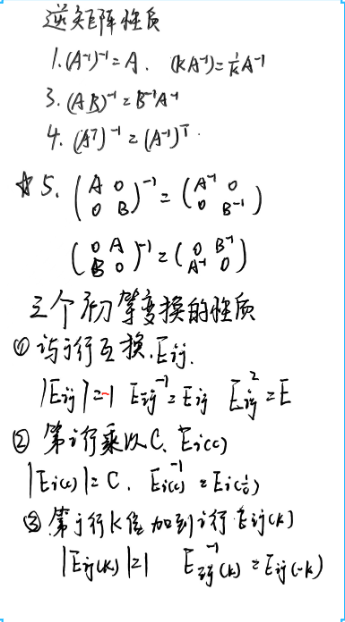 逆矩阵性质
1.(A⁻¹)⁻¹=A. (kA⁻¹)=1/k A⁻¹
3. (AB)⁻¹=B⁻¹A⁻¹
4. (Aᵀ)⁻¹=(A⁻¹)ᵀ.
☆5. (A 0
0 B)⁻¹=(A⁻¹ 0
0 B⁻¹)
(0 A
B 0)⁻¹=(0 B⁻¹
A⁻¹ 0)
三个初等变换的性质
① i与j行互换.Eij.
|Eij|=-1 Eij⁻¹=Eij Eij²=E
② 第i行乘以C. Ei(c)
|Ei(c)|=C. Ei(c)⁻¹=Ei(1/c)
③ 第j行K倍加到i行 Eij(k)
|Eij(k)|=1 Eij⁻¹(k)=Eij(-k)